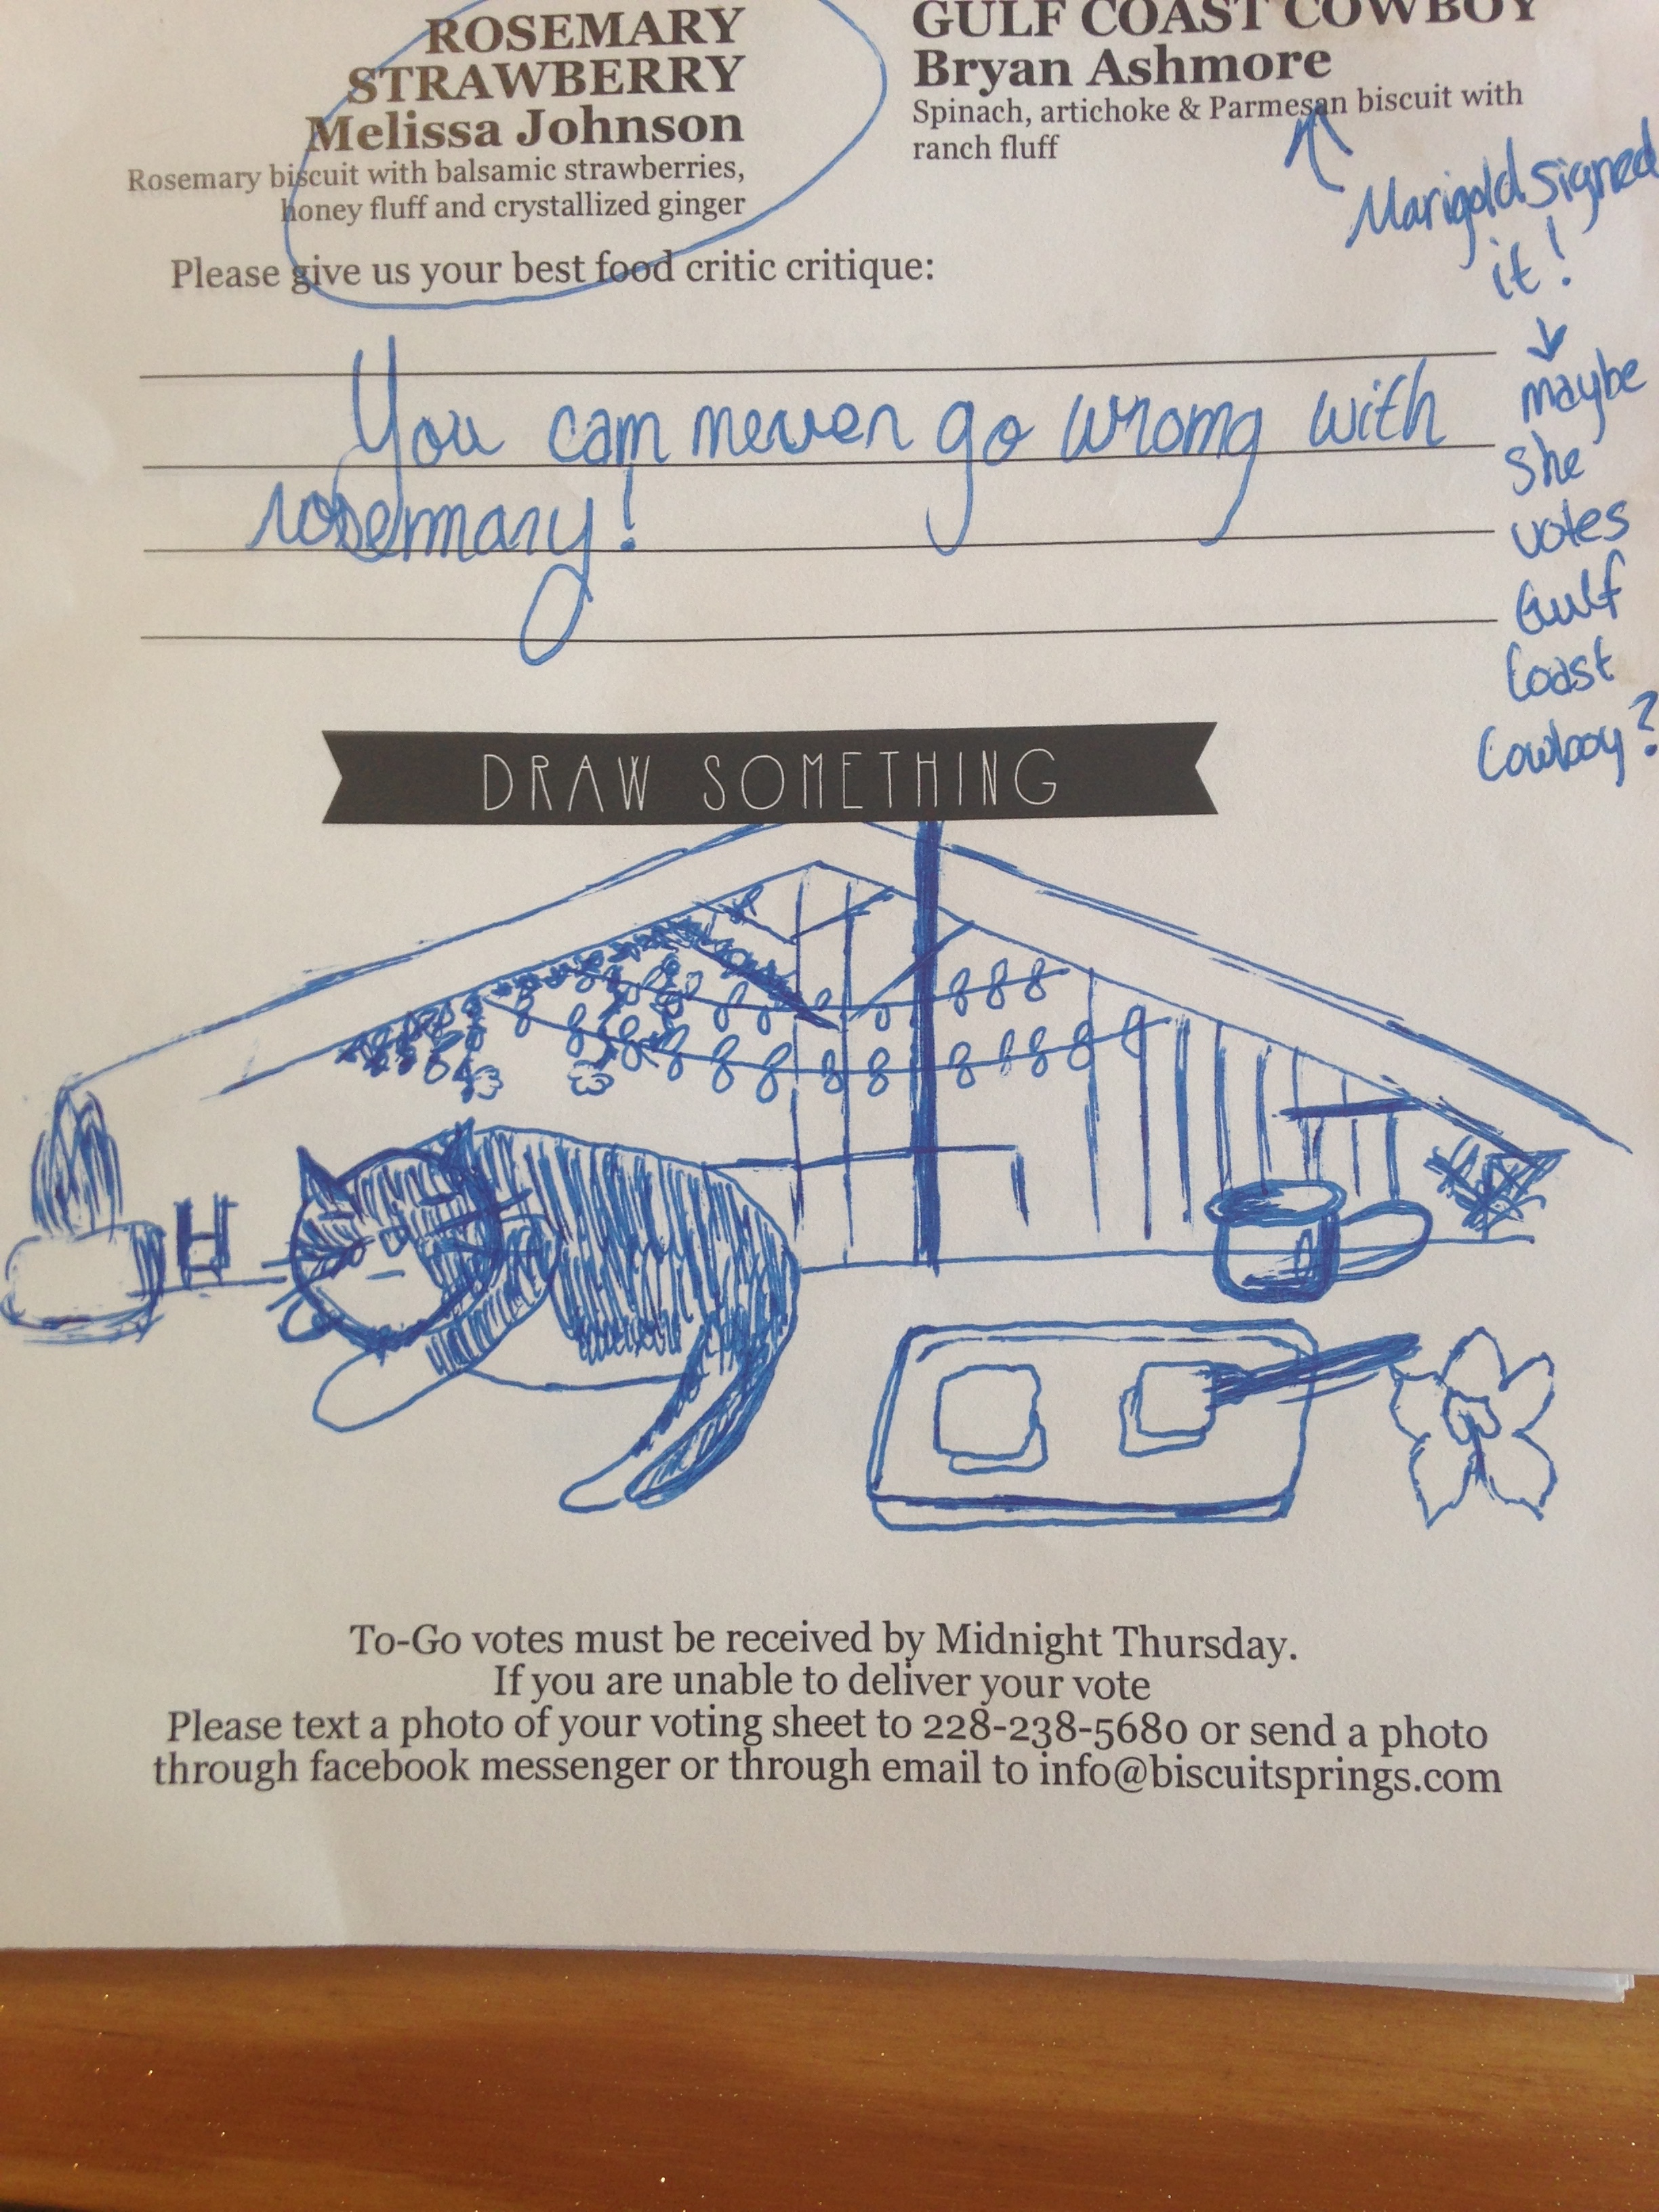 ROSEMARY
STRAWBERRY
Melissa Johnson
Rosemary biscuit with balsamic strawberries,
honey fluff and crystallized ginger
GULF COAST COWBOY
Bryan Ashmore
Spinach, artichoke & Parmesan biscuit with
ranch fluff
Marigold signed
it!
maybe
she
votes
Gulf
Coast
Cowboy?
Please give us your best food critic critique:
You can never go wrong with
rosemary!
DRAW SOMETHING
To-Go votes must be received by Midnight Thursday.
If you are unable to deliver your vote
Please text a photo of your voting sheet to 228-238-5680 or send a photo
through facebook messenger or through email to info@biscuitsprings.com